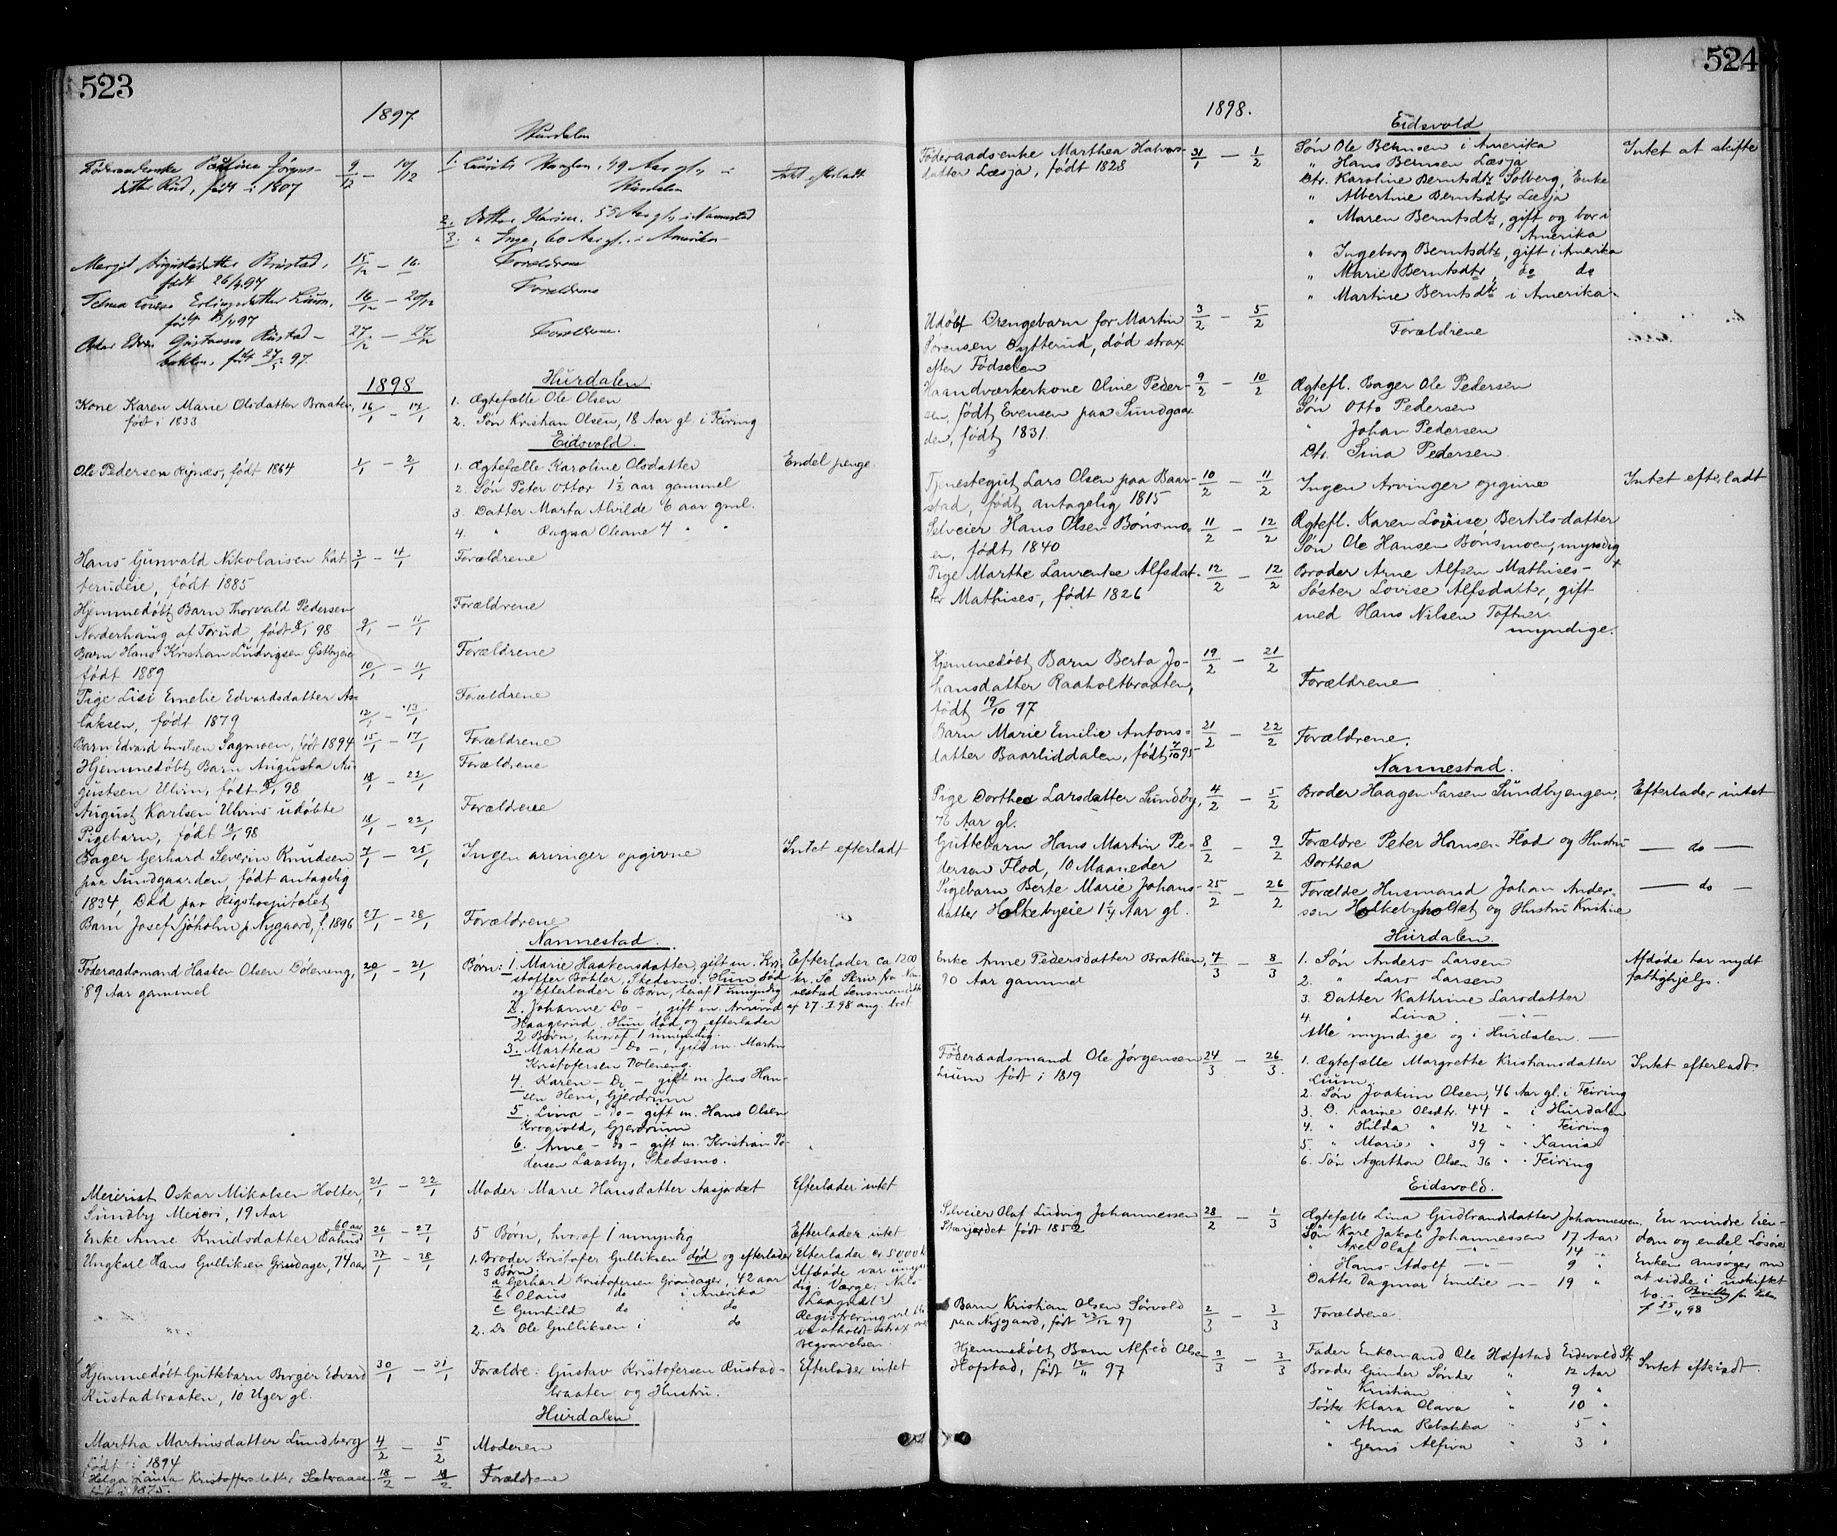 523
1897
Hurdalen
Føderaadsenke Pauline Jørgens- 9/12 — 10/12 1. Laurits 49 Aar gl. i Intet efterladt
datter Rud, født i 1807 Hurdalen
2. Datter Karine, 55 Aar gl. i Nannestad
3. " Inge, 60 Aar gl. i Amerika
Margit Augustsdatter Rustad, 15/12 — 16 Forældrene
født 26/ 97
Telma Erlingsdatter Lium, 16/12 — 20/12 Forældrene
født 97
Oskar Edvin Gustavsen Rustad- 27/12 — 27/12 Forældrene.
bakken, født 97.
1898 Hurdalen
Kone Karen Marie Olsdatter Braaten, 16/1 — 17/1 1. Ægtefælle Ole Olsen
født i 1833 2. Søn Kristian Olsen, 18 Aar gl. i Feiring
Eidsvold.
Ole Pedersen Rynæs, født 1864 1/1 — 2/1 1. Ægtefælle Karoline Olsdatter Endel penge
2. Søn Peter Ottor 1 1/2 aar gammel
3. Datter Marta Alvilde 6 aar gml.
4. " Dagna Oleane 4 " "
Hans Gunvald Nikolaisen Kat- 3/1 — 4/1 Forældrene
terudeie, født 1885
Hjemmedøbt Barn Thorvald Pedersen Forældrene
Norderhaug af Torud, født 8/1 98 9/1 — 11/1
Barn Hans Kristian Ludvigsen Østbyeie Forældrene
født 1889 10/1 — 11/1
Pige Lisi Emelie Edvardsdatter As- Forældrene
laksen, født 1879 12/1 — 13/1
Barn Edvard Emilsen Sagmoen, født 1894 15/1 — 17/1 Forældrene
Hjemmedøbt Barn Augusta Au- Forældrene
gustsen Ulvin, født 98 18/1 — 22/1
August Karlsen Ulvins udøbte Forældrene
Pigebarn, født 98 18/1 — 22/1
Bager Gerhard Severin Knudsen 7/1 — 25/1 Ingen arvinger opgivne Intet efterladt
paa Sundgaarden født antagelig
1834, Død paa Rigshospitalet
Barn Josef Sjøholm p. Nygaard, f. 1896 27/1 — 28/1 Forældrene
Nannestad.
Føderaadsmand Haaken Olsen Døleneng, 20/1 — 21/1 Børn: 1. Marie Haakensdatter, gift m. Kri- Efterlader ca 1200
89 Aar gammel stoffer Bøtler, Skedsmo. Hun død kr. Se Skriv. fra Nan-
og efterlader 6 Børn, hvraf 1 umyndig nestad Lensmandsk.
2. Johanne Do, gift m. Amund af 27.-I-98 ang. boet
Haagerud. Hun død og efterlader
2 Børn, hvoraf 1 umyndig
3. Marthea — Do —, gift m. Martin
Kristofersen Døleneng.
4. Karen — Do — gift m. Jens Han-
sen Heni, Gjerdrum
5. Lina — Do — gift m. Hans Olsen
Krogvold, Gjerdrum
6. Anne — do — gift m. Kristian Pe-
dersen Laasby, Skedsmo.
Meierist Oskar Mikalsen Holter, 21/1 — 22/1 Moder: Marie Hansdatter Aasjordet Efterlader intet
Sundby Meieri, 19 Aar
60 aar
Enke Anne Knudsdatter 26/1 — 27/1 5 Børn, hvoraf 1 umyndig Efterlader intet
Ungkarl Hans Gulliksen Grindager, 74 aar 27/1 — 28/1 1. Broder Kristofer Gulliksen død og efterlader Efterlader ca 5000 k
3 Børn: Afdøde var umyn-
a Gerhard Kristofersen Grøndager, 42 aar dig. Værge: Nils
b Olaus do i Amerika
c Gunhild do i do Registrering vil bli-
2. Do Ole Gulliksen i do ve afholdt strax over
Begravelsen
Hjemmedøbt Guttebarn Birger Edvard 30/1 — 31/1 Forældre: Gustav Kristofersen Rustad- Efterlader intet
Rustadbraaten, 10 Uger gl. braaten og Hustru.
Hurdalen
Martha Martinsdatter Lundberg 4/2 — 5/2 Moderen
født i 1894
Helga Laura Kristoffersdatter Sætraasen 18/2 — 19/2 Forældrene
født i 1875.
524
1898.
Eidsvold
Føderaadsenke Marthea Halvors- 31/1 — 1/2 Søn Ole Berntsen i Amerika Intet at skifte
datter Læsja, født 1828 " Hans Berntsen Læsja
Dtr. Karoline Berntsdtr Solberg, Enke
" Albertine Berntsdtr Læsja
" Maren Berntsdtr, gift og bor i
Amerika
" Ingeborg Berntsdtr, gift i Amerika
" Marie Berntsdtr, do do
" Martine Berntsdtr i Amerika.
Udøbt Drengebarn for Martin 3/2 — 5/2 Forældrene
Sørensen Dytterud, død strax
efter Fødselen
Haandværkerkone Oline Peder- 9/2 — 10/2 Ægtefl. Bager Ole Pedersen
sen, født Evensen paa Sundgaar- Søn Otto Pedersen
den, født 1831. " Johan Pedersen
Dtr. Sina Pedersen.
Tjenestegut Lars Olsen paa Baar- 10/2 — 11/2 Ingen Arvinger opgivne Intet efterladt
stad, født antagelig 1815
Selveier Hans Olsen Bønsmo- 11/2 — 12/2 Ægtefl. Karen Lovise Bertilsdatter
en, født 1840 Søn Ole Hansen Bønsmoen, myndig
Pige Marthe Laurentse Alfsdat- 12/2 — 12/2 Broder Arne Alfsen Mathises-
ter Mathises, født 1826 Søster Lovise Alfsdatter, gift
med Hans Nilsen Toftner
myndige.
Hjemmedøbt Barn Berta Jo- 19/2 — 21/2
hansdatter Raaholtbraaten, Forældrene
født 19/10 97
Barn Marie Emilie Antons- 21/2 — 22/2 Forældrene.
datter Baarliddalen, født 7/10 95
Nannestad.
Pige Dorthea Larsdatter Sundby, 4/2 — 5/2 Broder Haagen Larsen Sundbyengen, Efterlader intet
76 Aar gl.
Guttebarn Hans Martin Pe- 8/2 — 9/2 Forældre Peter Hansen Flod og Hustru — do —
dersen Flod, 10 Maaneder Dorthea
Pigebarn Berte Marie Johans- 25/2 — 26/2 Forældre Husmand Johan Ander- — do —
datter Holkebyeie 1 1/4 Aar gl. sen Holkebyholtet og Hustru Kristine
Hurdalen.
Enke Anne Pedersdatter Brathen, 7/3 — 8/3 1. Søn Anders Larsen Afdøde har nydt
90 Aar gammel 2. " Lars Larsen fattighjelp.
3. Datter Kathrine Larsdatter
4. " Lina — " —
Alle myndige og i Hurdalen. —
Føderaadsmand Ole Jørgensen 24/3 — 26/3 1. Ægtefælle Margrethe Kristiansdatter Intet efterladt.
Lium født i 1819 Lium.
2. Søn Joakim Olsen, 46 Aar gl. i Feiring
3. D. Karine Olsdtr. 44 " i Hurdalen
4. " Hilda " 42 " " Feiring
5. " Marie " 39 " " Xania
6. Søn Agathon Olsen 36 " " Feiring
Eidsvold.
Selveier Olaf Ludvig Johannessen 28/2 — 1/3 Ægtefælle Lina Gudbrandsdatter Johannessen, En mindre Eien-
født 1852 Søn Karl Jakob Johannessen 17 Aar dom og endel Løsøre
" Axel Olaf — " — 14 " Enken ansøger om
" Hans Adolf — " — 9 " at sidde i uskiftet
Datter Dagmar Emilie — " — 19 " bo. — Bevilling for Enken
Barn Kristian Olsen Sørvold 2/3 — 3/3 Forældrene. 98
paa Nygaard, født 22/12 97
Hjemmedøbt Barn Alfred Olsen 3/3 — 3/3 Fader Enkemand Ole Hofstad Eidsvold St.
Hofstad, født 12/11 97 Broder Gunder Sønder " 12 Aar Intet efterladt.
" Kristian " 9 "
Søster Klara Olava " 10 "
" Alma Rebekka " 5 "
" Gerni Alfiva " 3 "